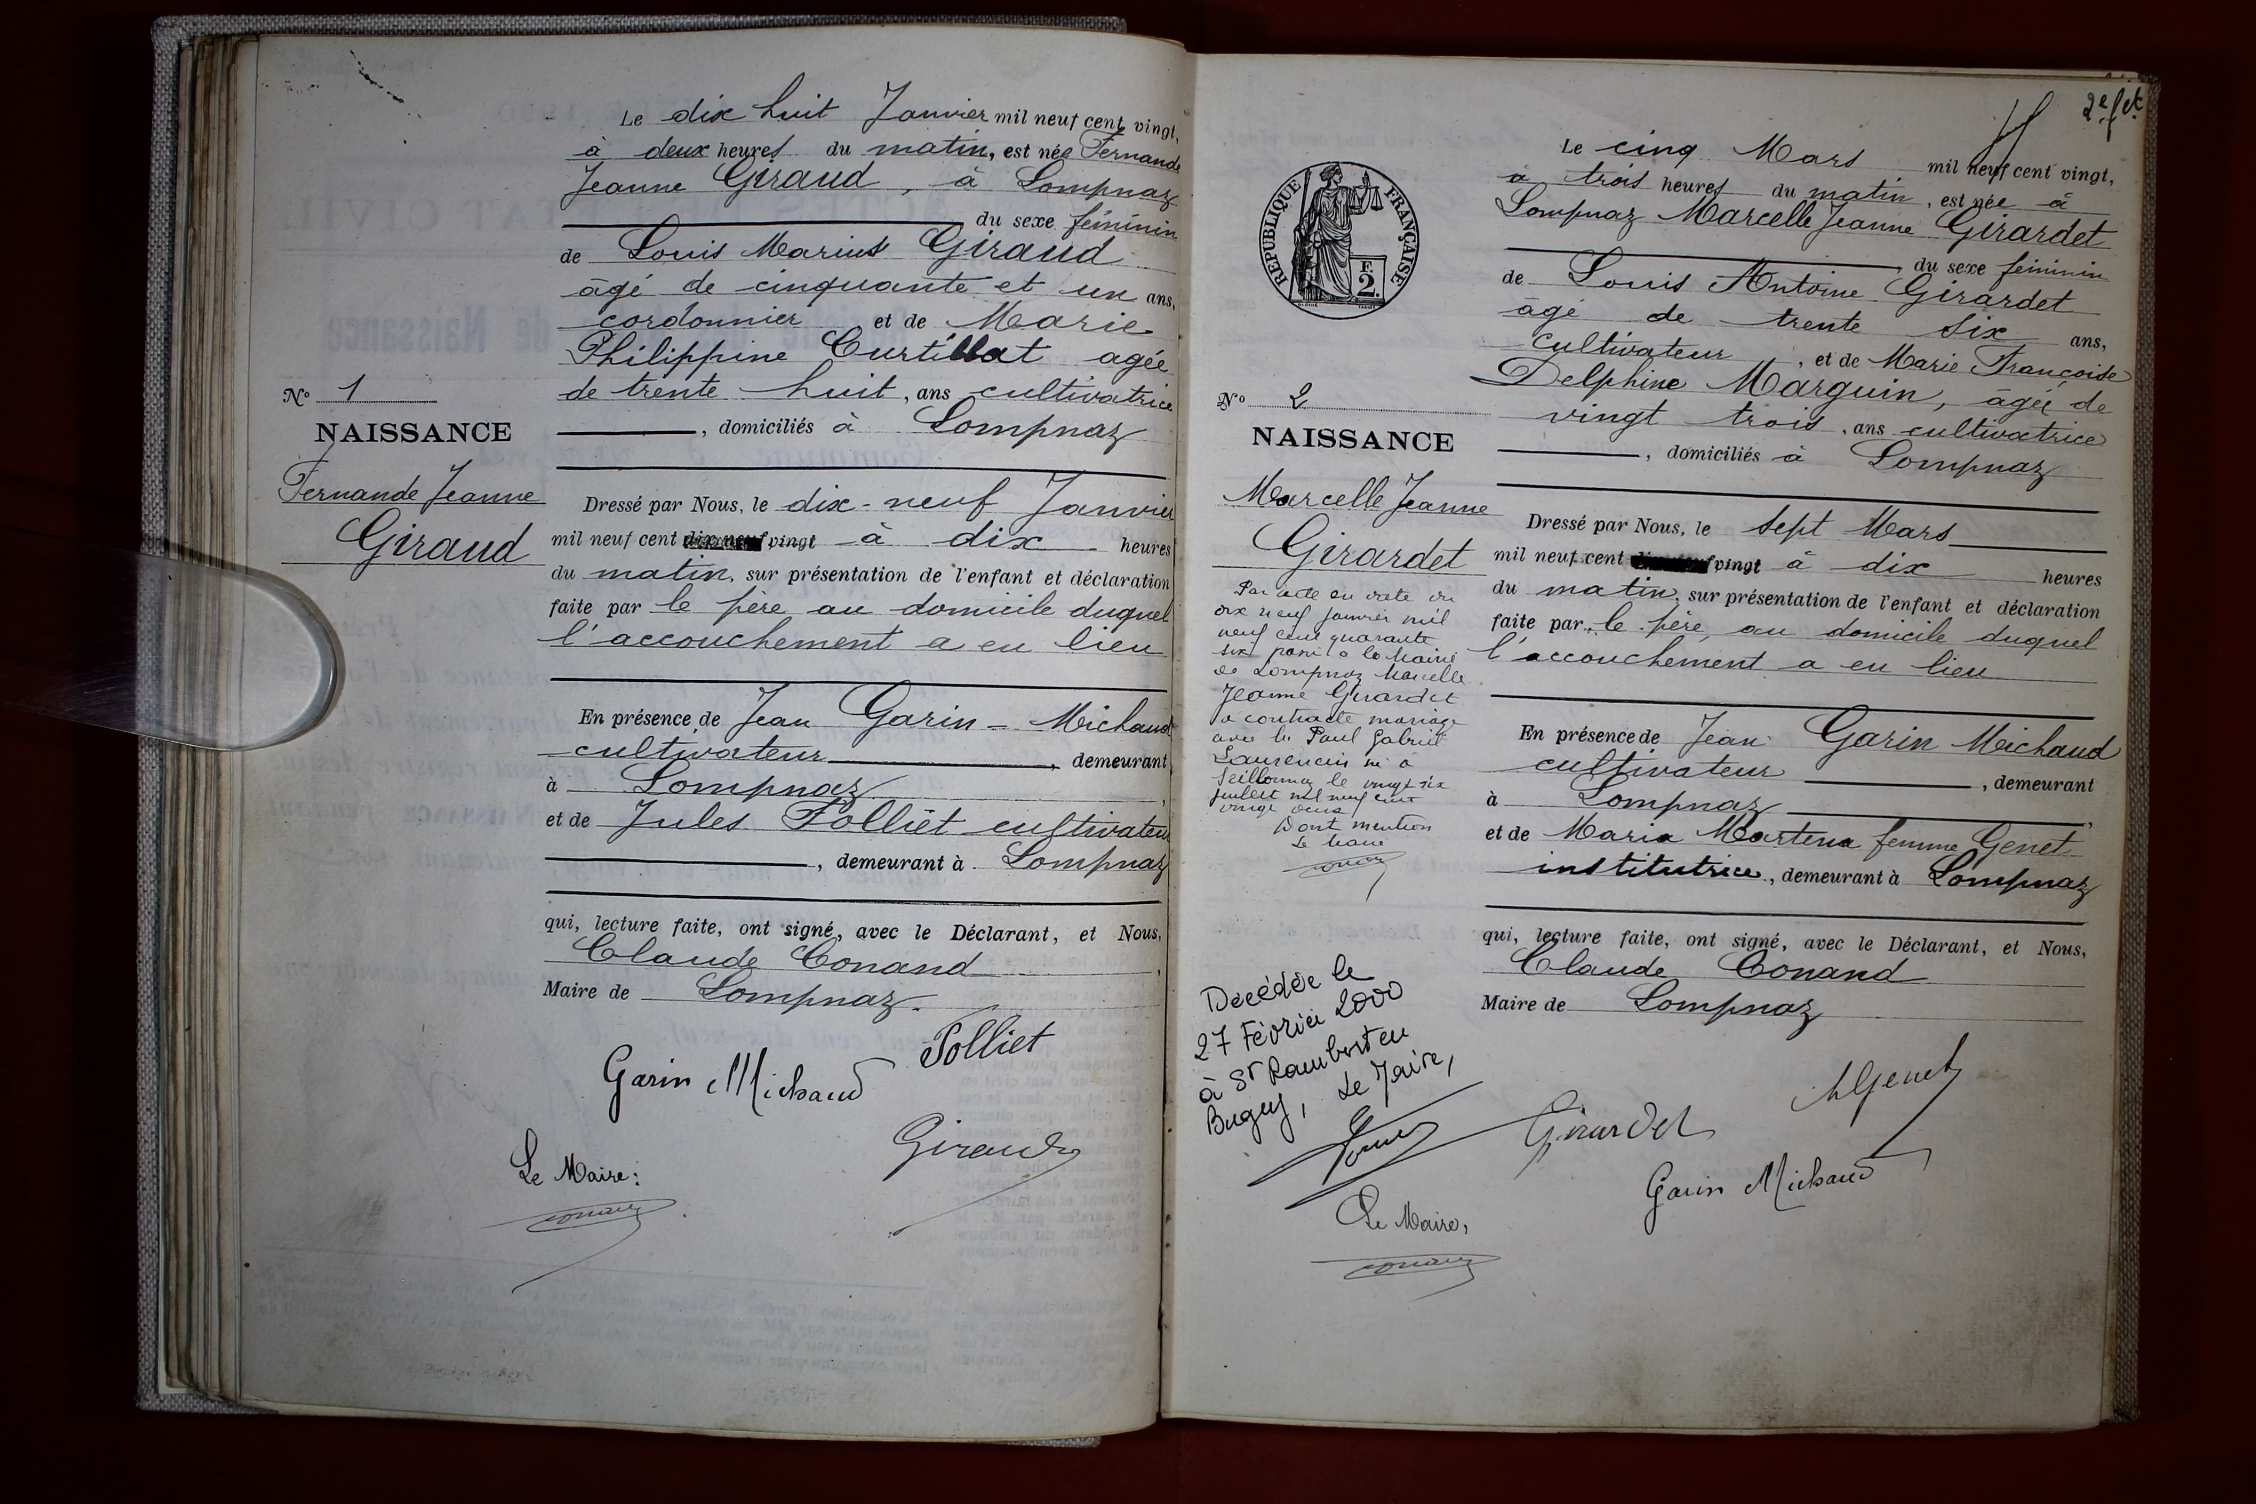 Le dix huit Janvier mil neuf cent vingt,
à deux heures du matin, est née Fernande
Jeanne Giraud, à Lompnaz
du sexe féminin
de Louis Marius Giraud
âgé de cinquante et un ans,
cordonnier et de Marie
Philippine Curtillat agée
de trente huit, ans cultivatrice
, domiciliés à Lompnaz
No 1
NAISSANCE
Fernande Jeanne
Giraud
Dressé par Nous, le dix-neuf Janvier
mil neuf cent vingt à dix heures
du matin, sur présentation de l'enfant et déclaration
faite par le père au domicile duquel
l'accouchement a eu lieu
En présence de Jean Garin-Michaud
cultivateur, demeurant
à Lompnaz,
et de Jules Folliet cultivateur
, demeurant à Lompnaz
qui, lecture faite, ont signé, avec le Déclarant, et Nous,
Claude Conand,
Maire de Lompnaz.
Folliet
Garin Michaud
Giraud
Le Maire:
Conand
2e fet
RÉPUBLIQUE FRANÇAISE
F.
2.
Le cinq Mars mil neuf cent vingt,
à trois heures du matin, est née à
Lompnaz Marcelle Jeanne Girardet
, du sexe féminin
de Louis Antoine Girardet
âgé de trente six ans,
cultivateur, et de Marie Françoise
Delphine Marguin, âgée de
vingt trois, ans cultivatrice
, domiciliés à Lompnaz
No 2
NAISSANCE
Marcelle Jeanne
Girardet
Par acte en date du
dix neuf janvier mil
neuf cent quarante
six passé à la Mairie
de Lompnaz Marcelle
Jeanne Girardet
a contracté mariage
avec le Paul Gabriel
Laurencin né à
Seillonnaz le vingt six
juillet mil neuf cent
vingt deux
Dont mention
Le Maire
Conand
Décédée le
27 Février 2000
à St Rambert en
Bugey, Le Maire,
Dressé par Nous, le sept Mars
mil neuf cent vingt à dix heures
du matin, sur présentation de l'enfant et déclaration
faite par le père, au domicile duquel
l'accouchement a eu lieu
En présence de Jean Garin Michaud
cultivateur, demeurant
à Lompnaz,
et de Maria Martena femme Genet
institutrice, demeurant à Lompnaz
qui, lecture faite, ont signé, avec le Déclarant, et Nous,
Claude Conand
Maire de Lompnaz
MGenet
Girardet
Garin Michaud
Le Maire,
Conand